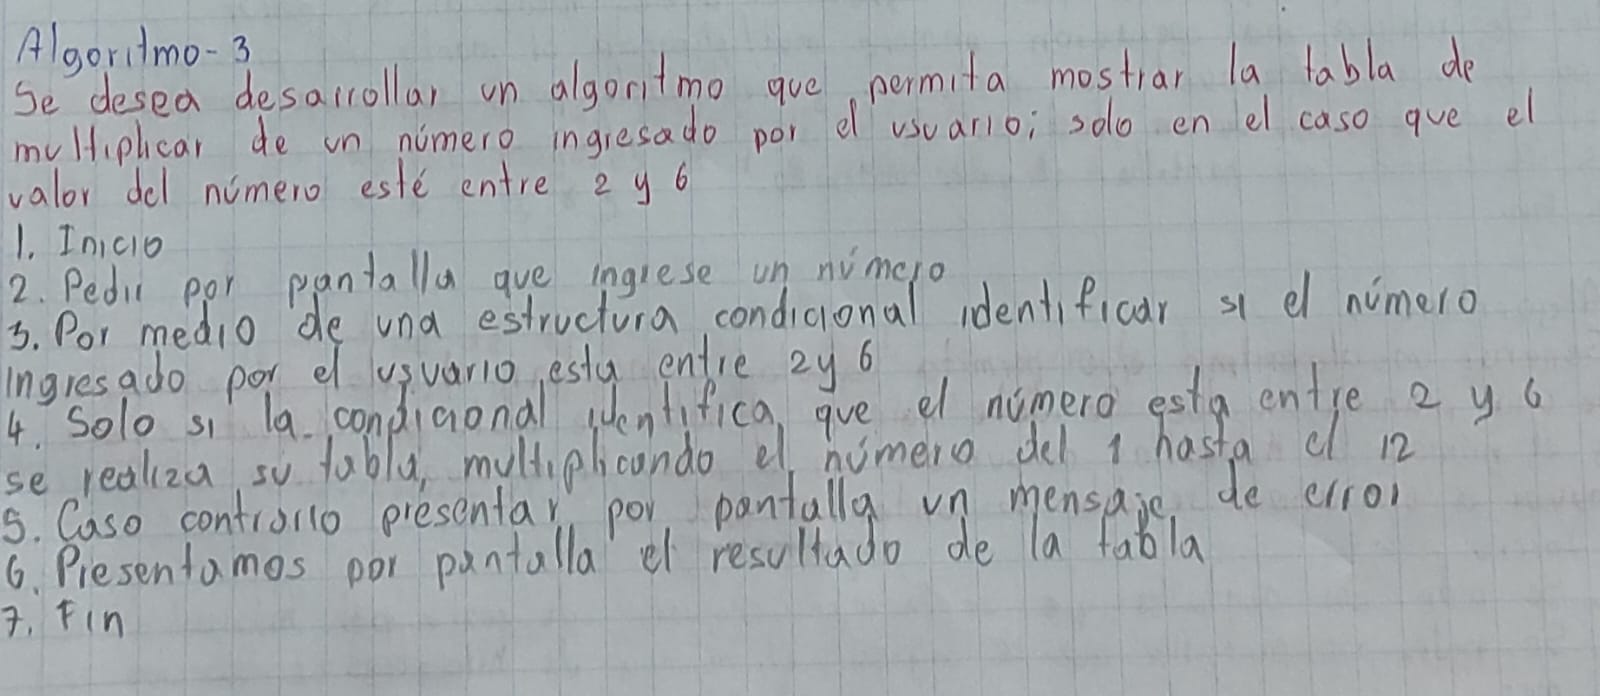 Algoritmo-3
Se desea desarrollar un algoritmo que permita mostrar la tabla de
multiplicar de un número ingresado por el usuario; solo en el caso que el
valor del número esté entre 2 y 6
1. Inicio
2. Pedir por pantalla que ingrese un número
3. Por medio de una estructura condicional identificar si el número
ingresado por el usuario esta entre 2 y 6
4. Solo si la condicional identifica que el número esta entre 2 y 6
se realiza su tabla, multiplicando el número del 1 hasta el 12
5. Caso contrario presentar por pantalla un mensaje de error
6. Presentamos por pantalla el resultado de la tabla
7. Fin